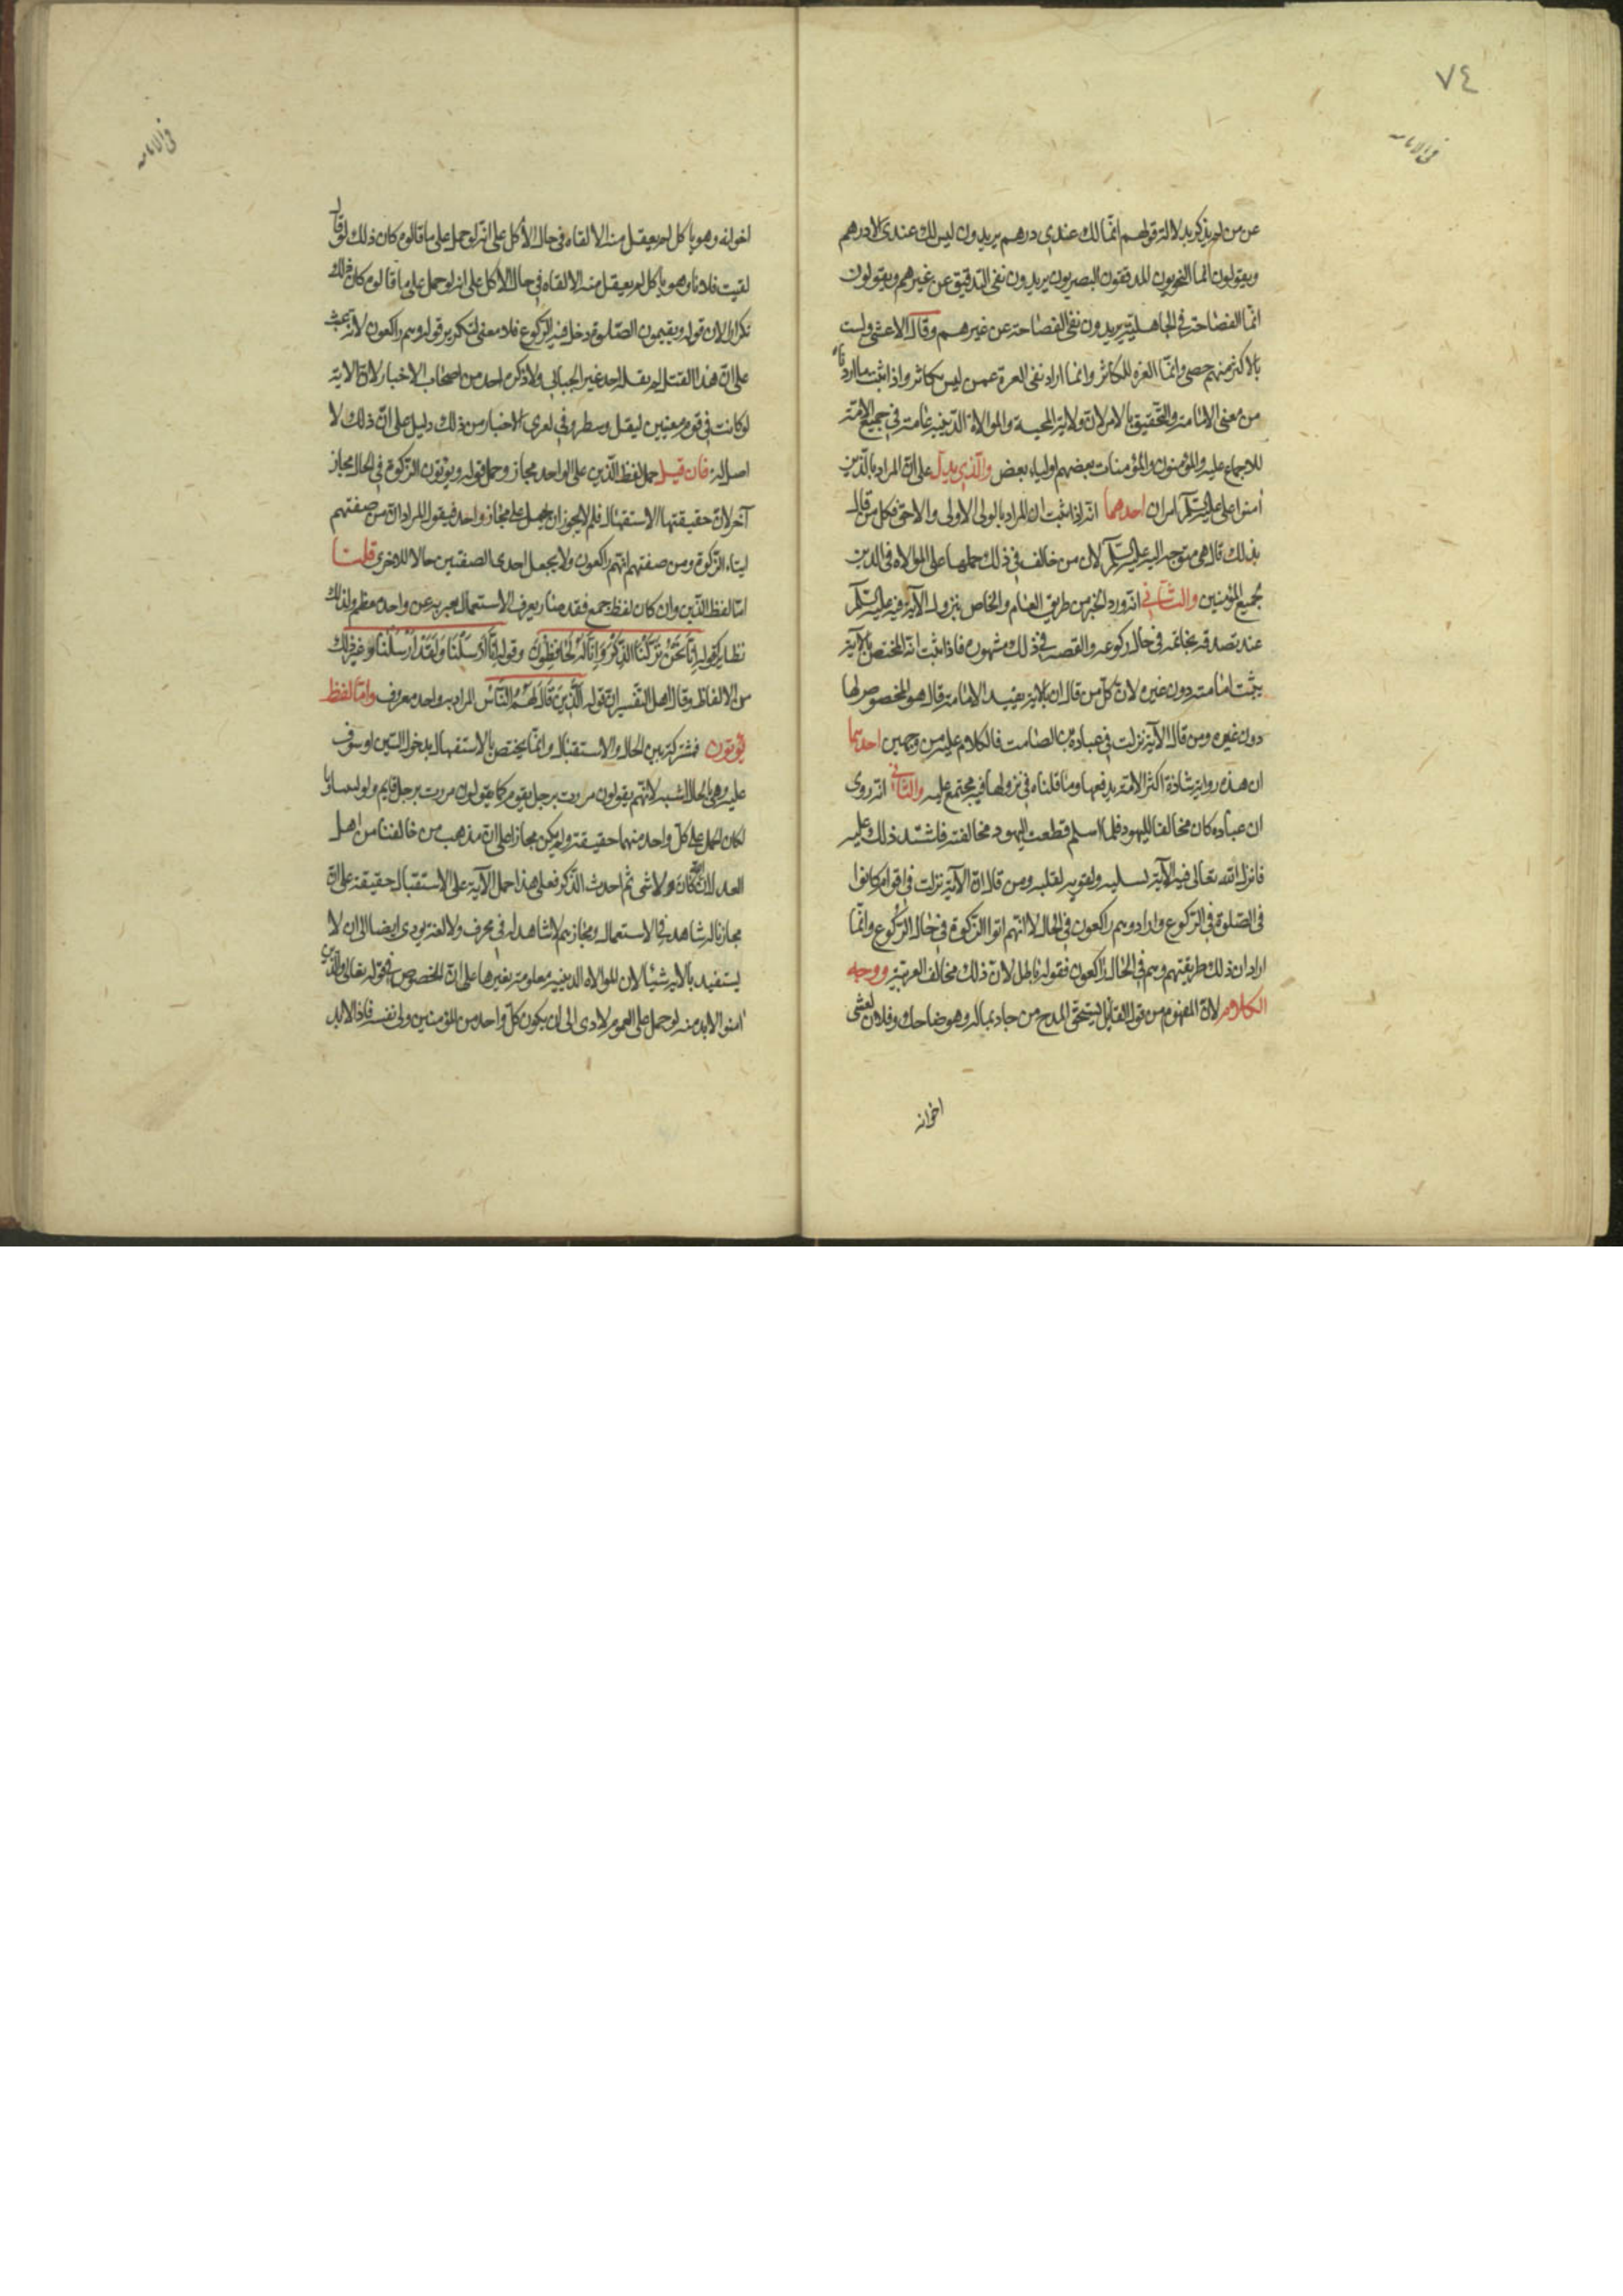 ٧٤
فى الامامه
عن من لم يذكر يدلالة قولهم انّما لك عندى درهم يريدون ليس لك عندى الا درهم
ويقولون انما النحويون المدققون البصريون يريدون نفى التدقيق عن غيرهم ويقولون
انّما الفصاحة فى الجاهليّة يريدون نفى الفصاحة عن غيرهم وقال الاعشى ولست
بالاكثر منهم حصى وانّما العزه للكاثر وانما اراد نفى العزة عمن ليس بكاثر واذا اثبت ما اردناه
من معنى الامامة والتحقيق بالامر لانّ ولاية المحبة والموالاة الدّينيه عامة فى جميع الامّة
للاجماع عليه والمؤمنون والمؤمنات بعضهم اولياء بعض والّذى يدلّ على انّ المراد بالّذين
آمنوا على عليه السّلم امران احدهما انّه اذا ثبت ان المراد بالولى الاولى والاحق فكل من قال
بذلك قال هى متوجه اليه عليه السّلم لان من خالف فى ذلك حملها على الموالاه فى الدين
لجميع المؤمنين والثّانى انّه ورد الخبر من طريق العام والخاص بنزول الآية فيه عليه السّلم
عند تصدقه بخاتمه فى حال ركوعه والقصه فى ذلك مشهورة فاذا ثبت انّه المختص بالآية
يثبت امامته دون غيره لانّ كلّ من قال ان الاية يفيد الامامة قال هو المخصوص لها
دون غيره ومن قال الآية نزلت فى عباده بن الصامت فالكلام عليه من وجهين احدهما
ان هذه رواية شاذة اكثر الامّة يدفعها وما قلناه فى نزولها فيه مجتمع عليه والثّانى انّه روى
ان عباده كان مخالفا لليهود فلما اسلم قطعت اليهود مخالفته فاشتد ذلك عليه
فانزل الله تعالى فيه الآية تسلية ولقوية لقلبه ومن قال انّ الآية نزلت فى اقوام كانوا
فى الصّلوة فى الرّكوع واراد وهم راكعون فى الحال لا انّهم اتوا الزّكوة فى حال الرّكوع وانّما
اراد ان ذلك طريقتهم وهم فى الحال راكعون فقوله باطل لانّ ذلك مخالف العربيّة ووجه
الكلام لانّ المفهوم من قول القائل يستحقّ المدح من جاد بماله وهو ضاحك وفلان يغشى
اخوانه
فى الامامه
اخوانه وهو ياكل لم يعقل منه الا لقاه فى حال الأكل على انّه لو حمل على ما قالوه كان ذلك لو قال
لقيت فلانا وهو ياكل لم يعقل منه الا لقاه فى حال الاكل على انه لو حمل على ما قالوه كان ذلك
تكرارا لان قوله ويقيمون الصّلوة دخل فيه الركوع فلا معنى لتكرير قوله وهم راكعون لانّه عبث
على انّ هذا القتل لم يقله احد غير الجبائى ولا ذكره احد من اصحاب الاخبار لانّ الاية
لو كانت فى قوم معينين لنقل وسطر وفى تعرى الاخبار من ذلك دليل على انّ ذلك لا
اصل له فان قيل حمل لفظ الّذين على الواحد مجاز وحمل قوله ويؤتون الزكوة فى الحال مجاز
آخر لانّ حقيقتها الاستقبال فلم لا يجوز ان يحمل على مجاز واحد فيقوا المراد ان من صفتهم
ايتاء الزّكوة ومن صفتهم انّهم راكعون ولا يجعل احدى الصفتين حالا للاخرى قلنا
امّا لفظ الّذين وان كان لفظ جمع فقد صار بعرف الاستعمال يعبر به عن واحد معظم ولذلك
نظاير كقوله اِنَّا نَحْنُ نَزَّلْنَا الذِّكْرَ وَاِنَّا لَهُ لَحَافِظُونَ وقوله اِنَّا اَرْسَلْنَا وَلَقَدْ اَرْسَلْنَا وغير ذلك
من الالفاظ وقال اهل التفسير ان قوله الَّذِينَ قَالَ لَهُمُ النَّاسُ المراد به واحد معروف وامّا لفظ
يؤتون فمشتركة بين الحال والاستقبال وانّما يختص بالاستقبال بدخول السّين او سوف
عليه وهى بالحال اشبه لانّهم يقولون مررت برجل يقوم كما يقولون مررت برجل قايم ولو تساويا
لكان الحمل على كلّ واحد منهما حقيقة ولم يكن مجازا على انّ مذهب من خالفنا من اهل
العدل انّ الله كان ولا شى ثم احدث الذّكر فعلى هذا حمل الآية على الاستقبال حقيقة على انّ
مجازنا له شاهد فى الاستعمال ومجازهم لا شاهد له فى عرف ولا لغة يودى ايضا الى ان لا
يستفيد بالاية شيئا لان الموالاه الدينيه معلومة بغيرها على انّ المخصوص فى قوله تعالى والّذين
آمنوا لابد منه لو حمل على العموم لادى الى ان يكون كلّ واحد من المؤمنين ولى نفسه فاذا لابد